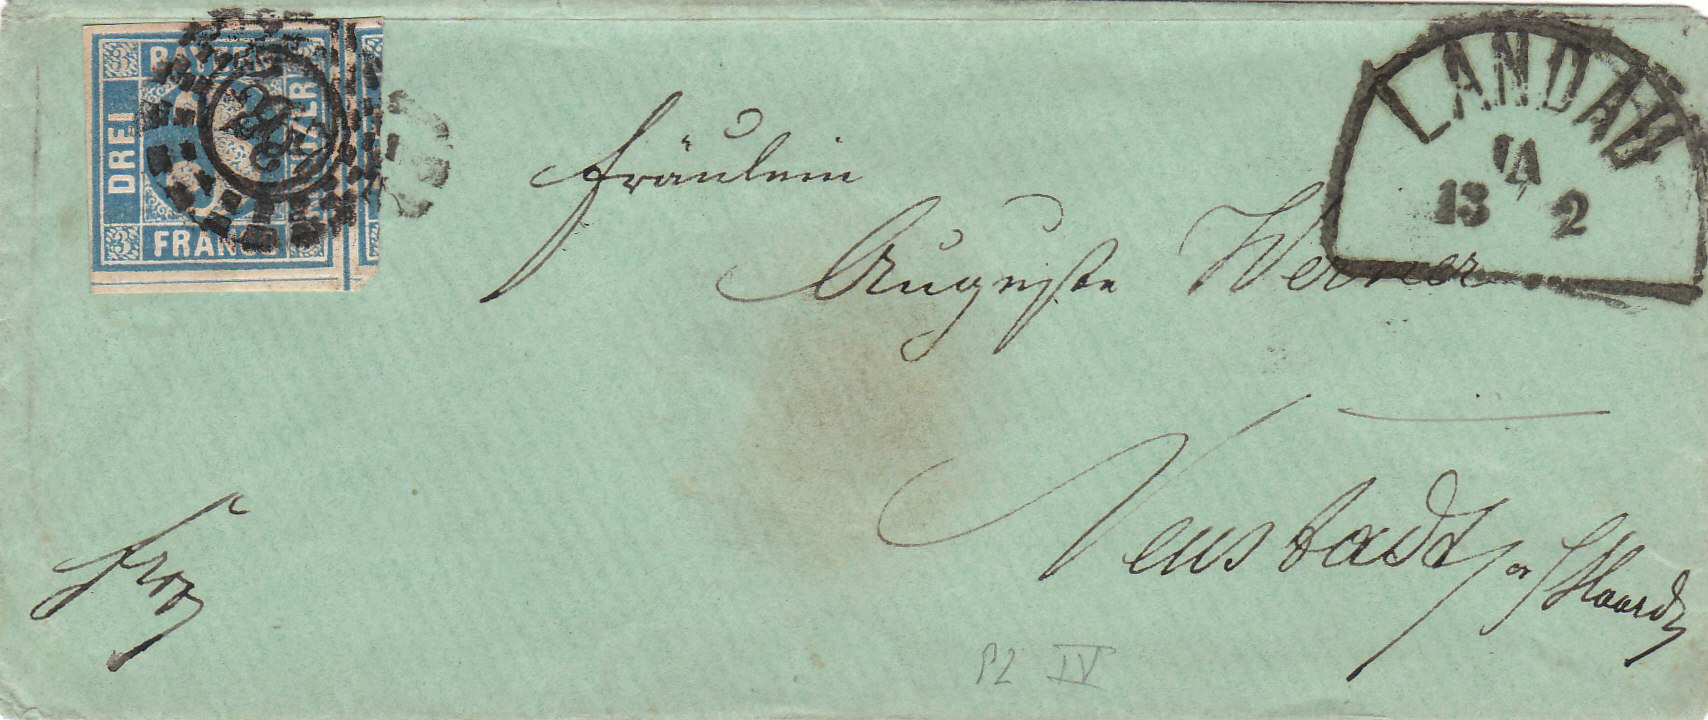 BAYERN
DREI
KREUZER
FRANCO
3
3
LANDAU
13 2
Fräulein
Auguste Werner
Neustadt a/Haardt
frey
P2 IV